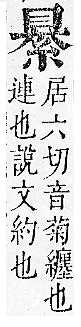 居六切音菊纏也
連也說文約也